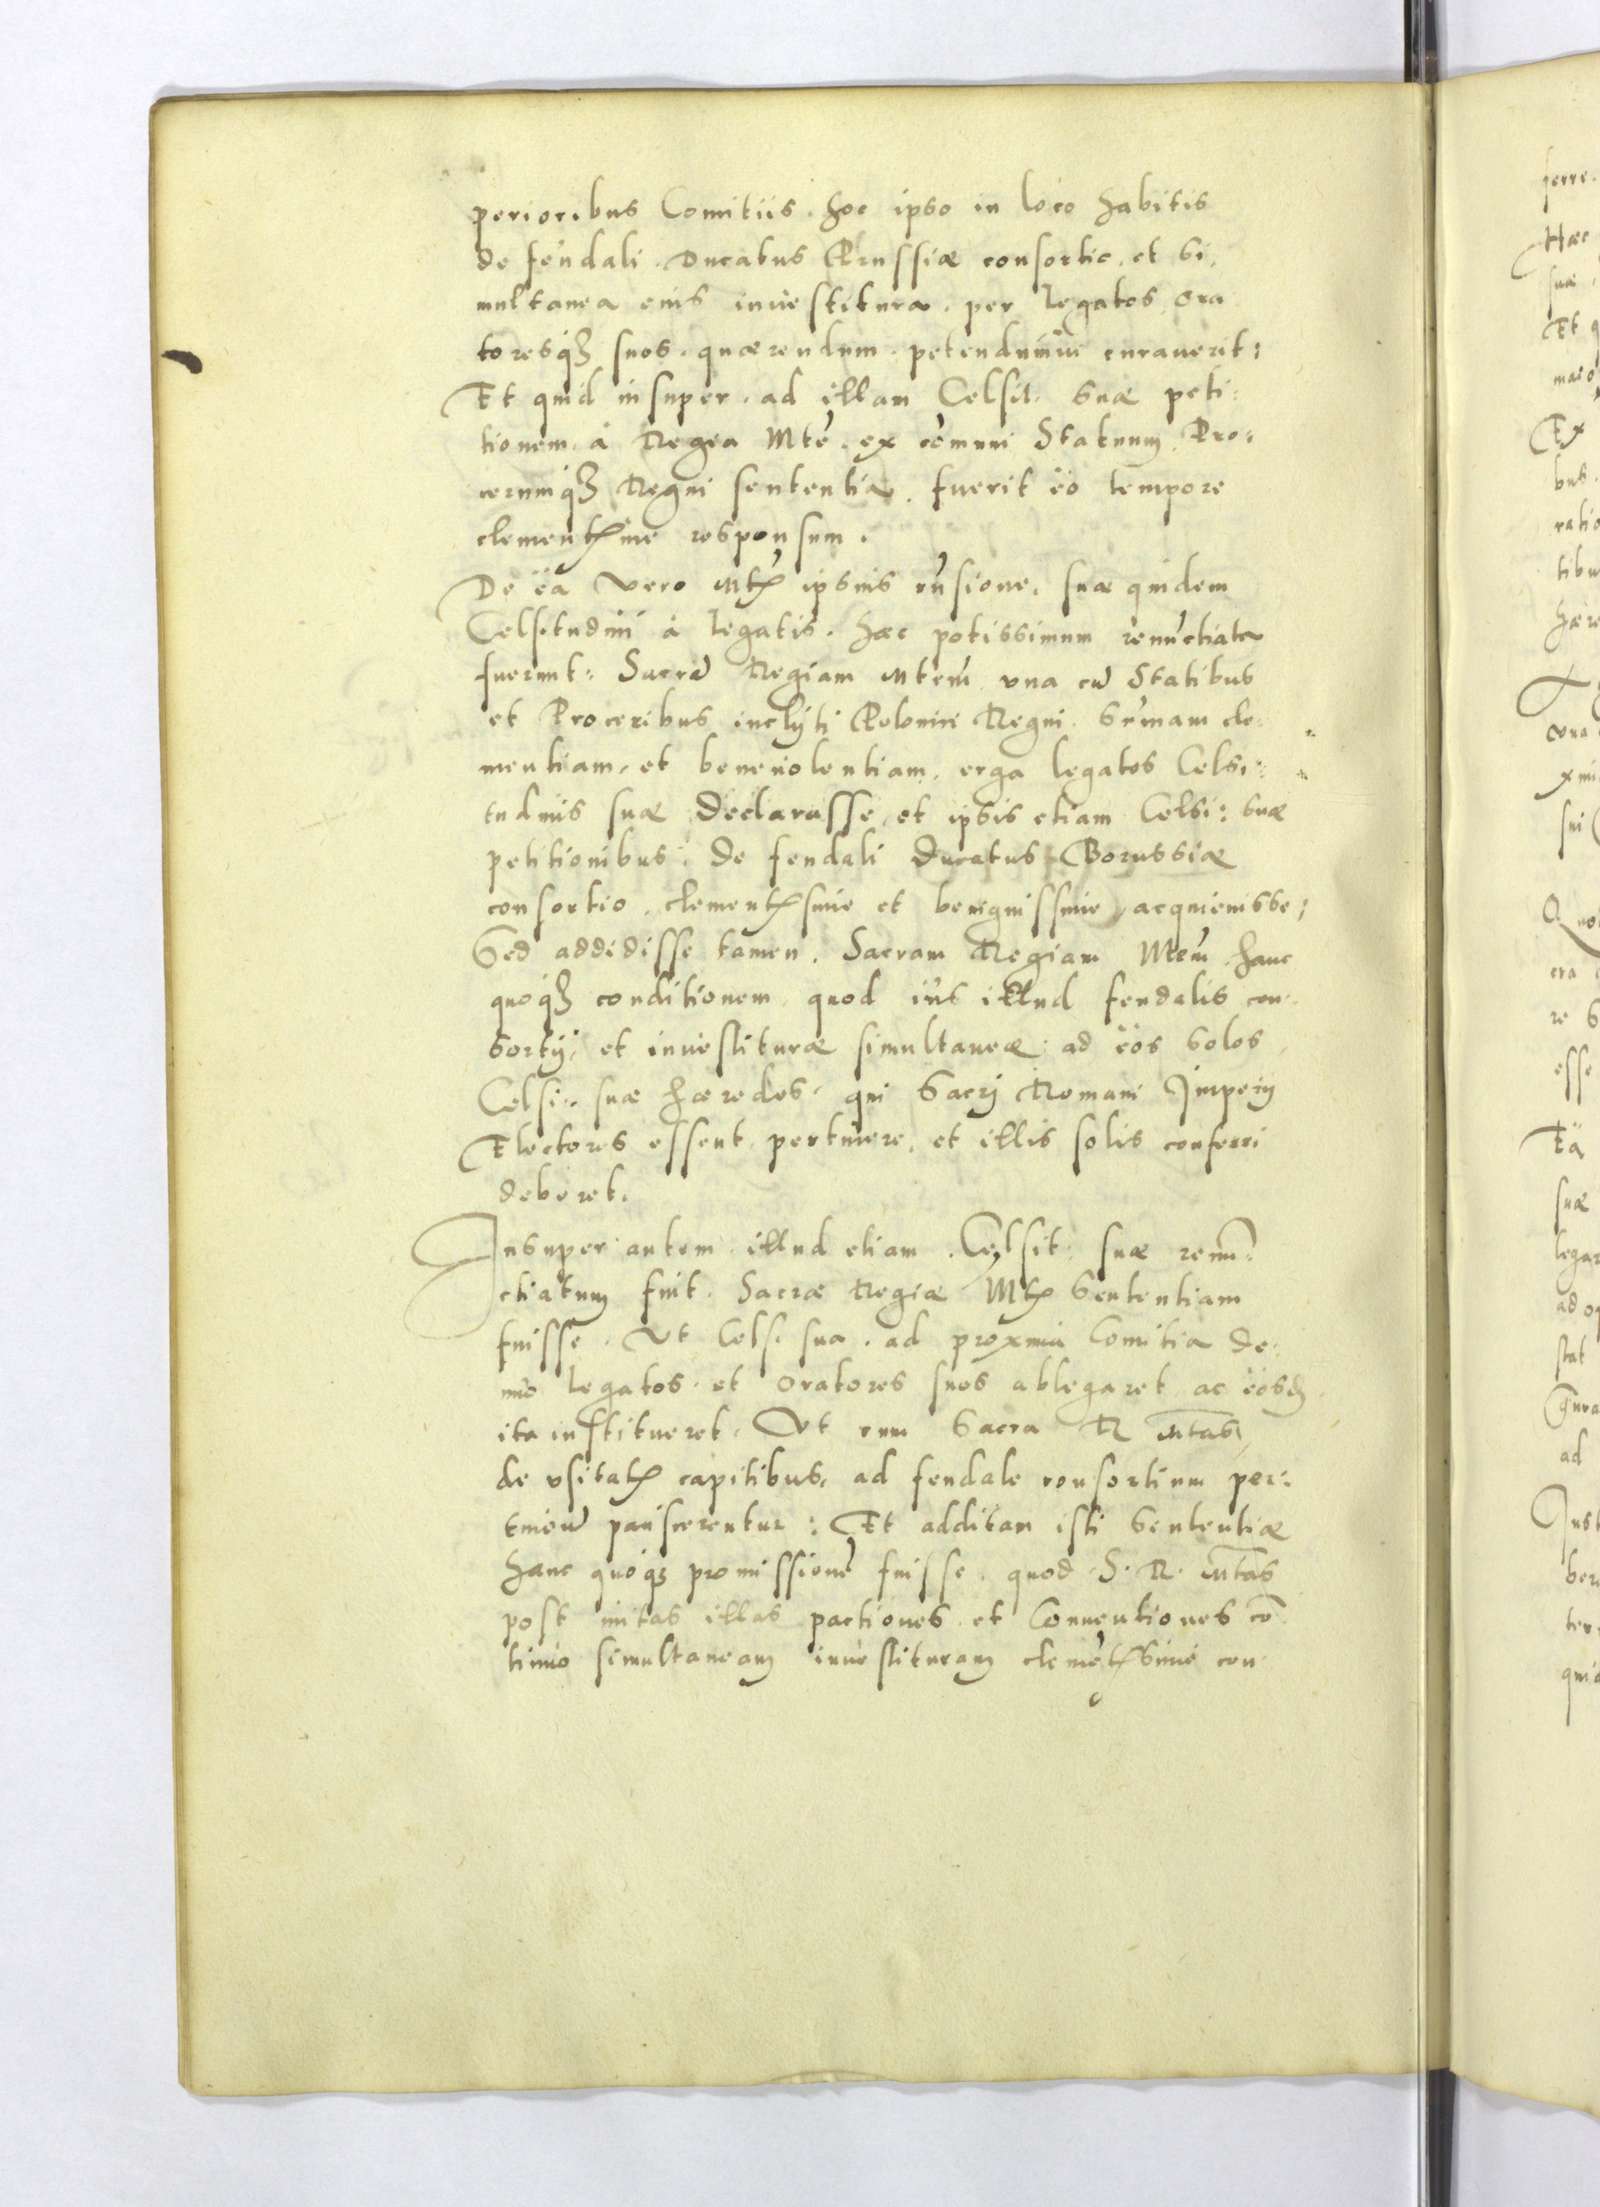 perioribus Comitiis. hoc ipso in loco habitis
de feudali. Ducatus Prussiæ consortio, et si,
multanea eius inuestitura. per Legatos, Ora
toresq3 suos. quærendum. petendumue curauerit:
Et quid insuper. ad illam Celsit. suæ peti:
tionem. à Regia Mte. ex comuni Statuum, Pro:
cerumq3 Regni sententia. fuerit ëo tempore
clementssime responsum.
De ëa vero Mtis ipsius rnsione. suæ quidem
Celsitudini à Legatis. hæc potissimum renuctiata
fuerunt: Sacra Regiam Mtem, vna cu Statibus
et Proceribus inclyti Polonici Regni. summam cle:
mentiam, et beneuolentiam, erga legatos Celsi:
tudinis suæ declarasse, et ipsis etiam Celsi: suæ
petitionibus. de feudali Ducatus Borussiæ
consortio. clementissime et benignissime, acquieuisse:
Sed addidisse tamen. Sacram Regiam Mtem. hanc
quoq3 conditionem. quod ius illud feudalis con:
sortij, et inuestituræ simultaneæ. ad ëos solos,
Celsi. suæ hæredes. qui Sacrj Romani Imperij
Electores essent, pertinere, et illis solis conferri
deberet.
Insuper autem. illud etiam. Celsit. suæ renu:
ctiatum fuit. Sacræ Regiæ Mtis Sententiam
fuisse. Vt Cels. sua. ad proxima Comitia de:
nuo Legatos. et Oratores suos ablegaret, ac ëosd
ita institueret. Vt cum Sacra R Mtas,
de vsitatis capitibus, ad feudale consortium per:
tineu paciscerentur: Et additam isti sententiæ
hanc quoq3 promissione fuisse. quod S. R. Mtas
post initas illas pactiones. et Conuentiones co
tinuo simultaneam inuestituram clemetissime con